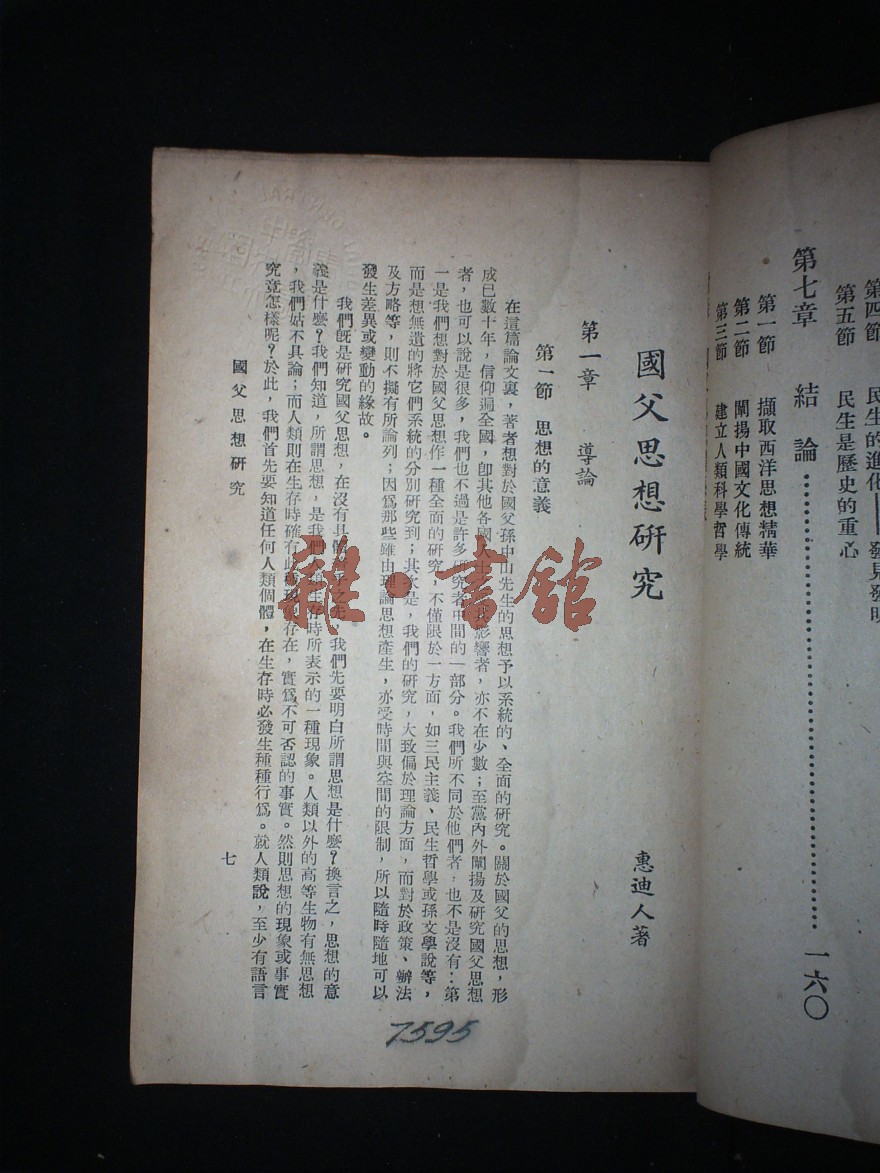 民生的進化——發見發明
第五節 民生是歷史的重心
第七章 結論……………………………………一六〇
第一節 擷取西洋思想精華
第二節 闡揚中國文化傳統
第三節 建立人類科學哲學
國父思想研究
惠迪人著
第一章 導論
第一節 思想的意義
在這篇論文裏,著者想對於國父孫中山先生的思想予以系統的、全面的研究。關於國父的思想,形
成已數十年,信仰遍全國,卽其他各國人士之影響者,亦不在少數;至黨內外闡揚及研究國父思想
者,也可以說是很多,我們也不過是許多研究者中間的一部分。我們所不同於他們者,也不是沒有:第
一是我們想對於國父思想作一種全面的研究,不僅限於一方面,如三民主義、民生哲學或孫文學說等,
而是想無遺的將它們系統的分別研究到;其次是,我們的研究,大致偏於理論方面,而對於政策、辦法
及方略等,則不擬有所論列;因爲那些雖由理論思想產生,亦受時間與空間的限制,所以隨時隨地可以
發生差異或變動的緣故。
我們旣是研究國父思想,在沒有具體之先,我們先要明白所謂思想是什麼?換言之,思想的意
義是什麼?我們知道,所謂思想,是我們人類生存時所表示的一種現象。人類以外的高等生物有無思想
,我們姑不具論;而人類則在生存時確有此種現象存在,實爲不可否認的事實。然則思想的現象或事實
究竟怎樣呢?於此,我們首先要知道任何人類個體,在生存時必發生種種行爲。就人類說,至少有語言
國父思想研究
七
7595
雜·書館